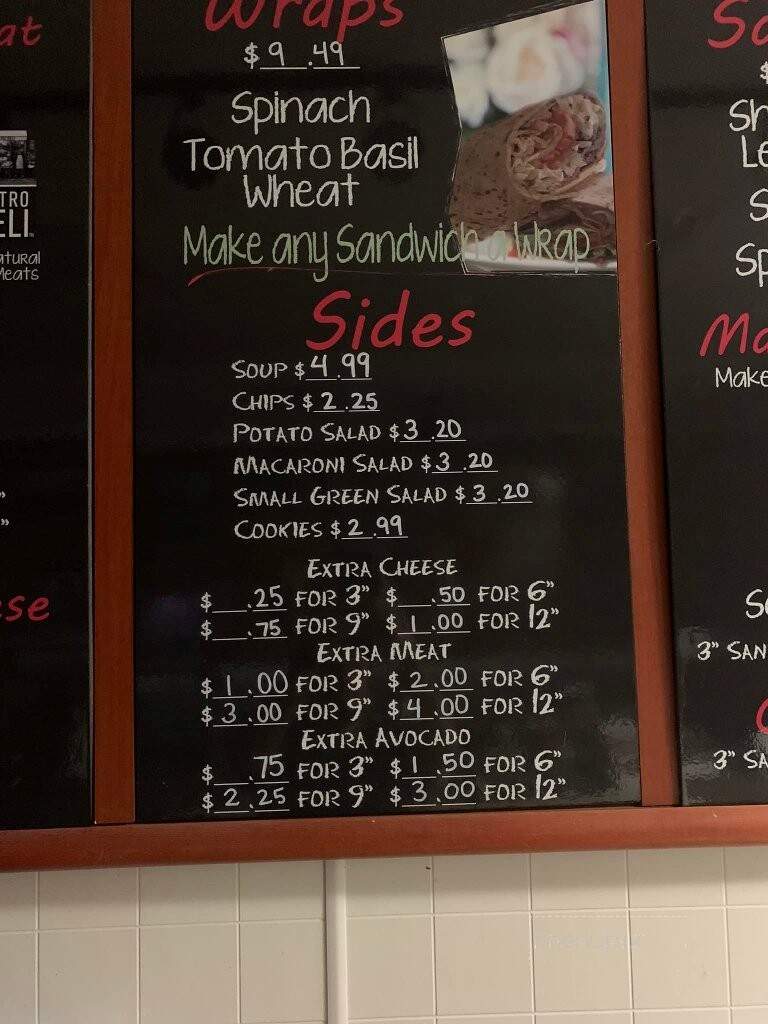 at
TRO
ELI
atural
Meats
"
"
ese
Wraps
$9.49
Spinach
Tomato Basil
Wheat
Make any Sandwich a Wrap
Sides
SOUP $4.99
CHIPS $2.25
POTATO SALAD $3.20
MACARONI SALAD $3.20
SMALL GREEN SALAD $3.20
COOKIES $2.99
EXTRA CHEESE
$ .25 FOR 3" $ .50 FOR 6"
$ .75 FOR 9" $1.00 FOR 12"
EXTRA MEAT
$1.00 FOR 3" $2.00 FOR 6"
$3.00 FOR 9" $4.00 FOR 12"
EXTRA AVOCADO
$ .75 FOR 3" $1.50 FOR 6"
$2.25 FOR 9" $3.00 FOR 12"
Sa
$
Sh
Le
S
Sp
Ma
Make
S
3" SAN
3" SA